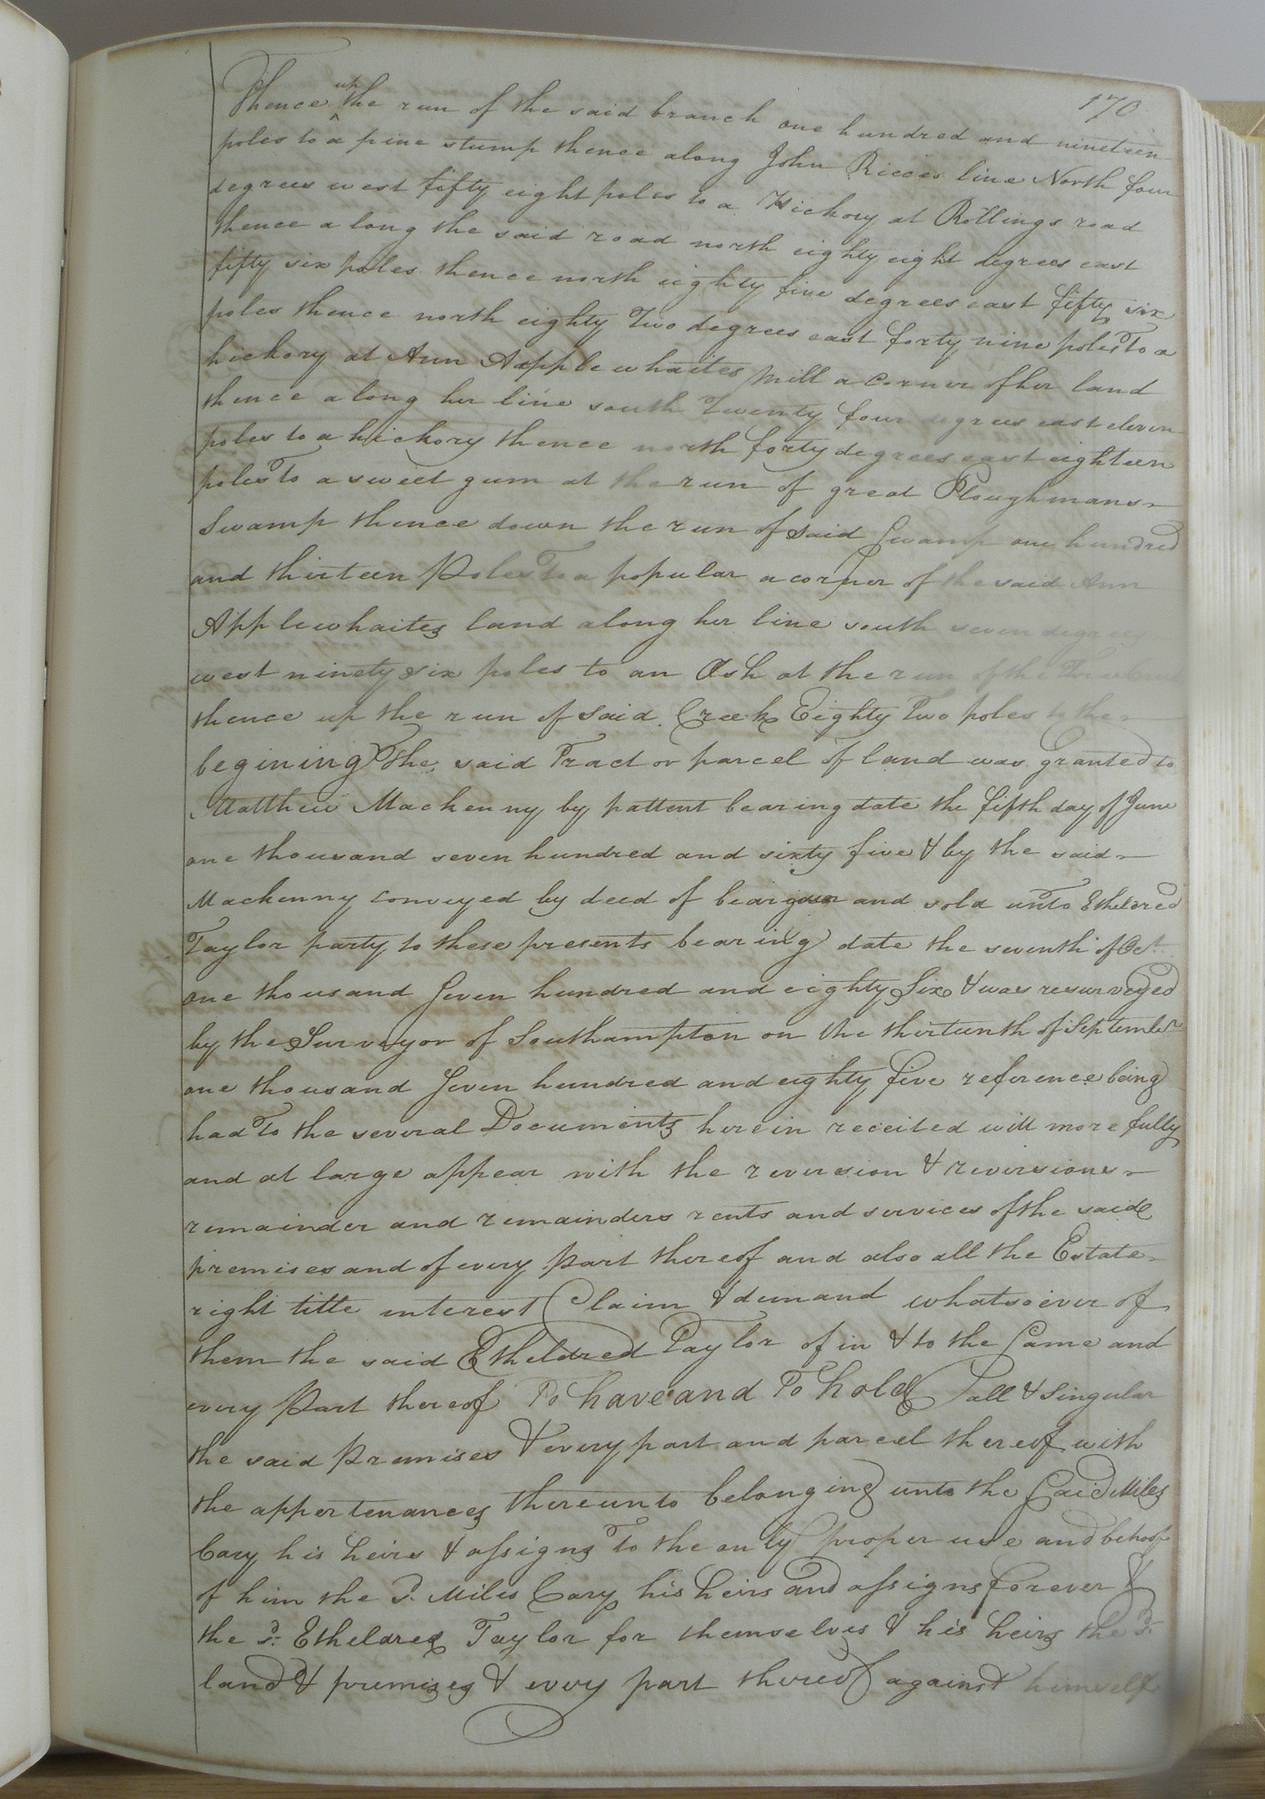 170
Thence up the run of the said branch one hundred and nineteen
poles to a pine stump thence along John Ricies line North four
degrees west fifty eight poles to a Hickory at Rollings road
thence a long the said road north eighty eight degrees east
fifty six poles thence north eighty five degrees east fifty six
poles thence north eighty Two degrees east forty nine poles To a
hickory at Ann Applewhaites Mill a Corner of her land
thence along her line south Twenty four degrees east eleven
poles to a hickory thence north forty degrees east eighteen
poles To a sweet gum at the run of great Ploughmans
Swamp thence down the run of said Swamp one hundred
and thirteen Poles To a popular a corner of the said Ann
Applewhaites land along her line south seven degrees
west ninety six poles to an Ash at the run of the
thence up the run of said Creek Eighty Two poles to the
begining The said Tract or parcel of land was granted to
Matthew Mackenny by pattent bearing date the fifth day of June
one thousand seven hundred and sixty five & by the said
Mackenny conveyed by deed of beargain and sold unto Etheldred
Taylor party to these presents bearing date the seventh of Oct.
one thousand Seven hundred and eighty Six & was resurveyed
by the Surveyor of Southampton on the thirteenth of September
one thousand Seven hundred and eighty five reference being
had To the several Documents herein receited will more fully
and at large appear with the reversion & reversions
remainder and remainders rents and services of the said
premises and of every Part thereof and also all the Estate
right title interest Claim & demand whatsoever of
them the said Etheldred Taylor of in & to the Same and
every Part thereof To have and To hold all & Singular
the said Premises & every part and parcel thereof with
the appertenances thereunto belonging unto the Said Miles
Cary his heirs & assigns To the only proper use and behoof
of him the Sd. Miles Cary his heirs and assigns forever &
the sd. Etheldred Taylor for themselves & his heirs the sd.
land & premises & every part thereof against himself